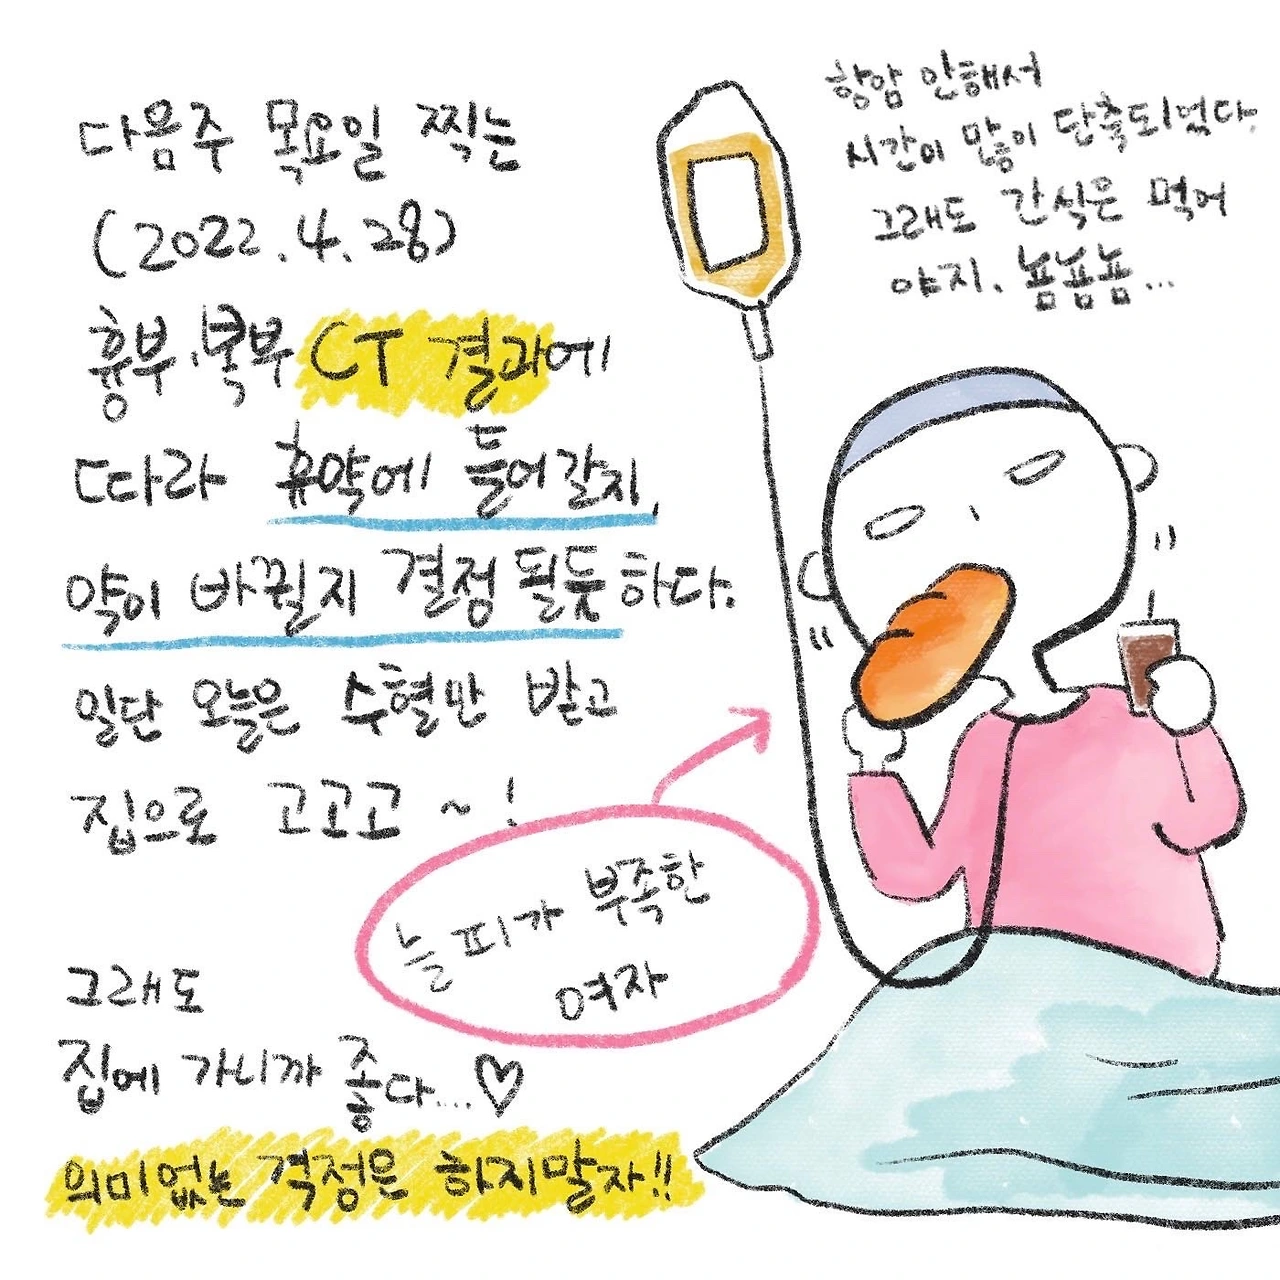 다음주 목요일 찍는
(2022.4.28)
흉부.복부 CT 결과에
따라 휴약에 들어갈지,
약이 바뀔지 결정 될듯하다.
일단 오늘은 수혈만 받고
집으로 고고고 ~ !
그래도
집에 가니까 좋다...♡
의미없는 걱정은 하지말자!!
항암 안해서
시간이 많이 단축되었다.
그래도 간식은 먹어
야지. 뇸뇸뇸...
늘 피가 부족한
여자